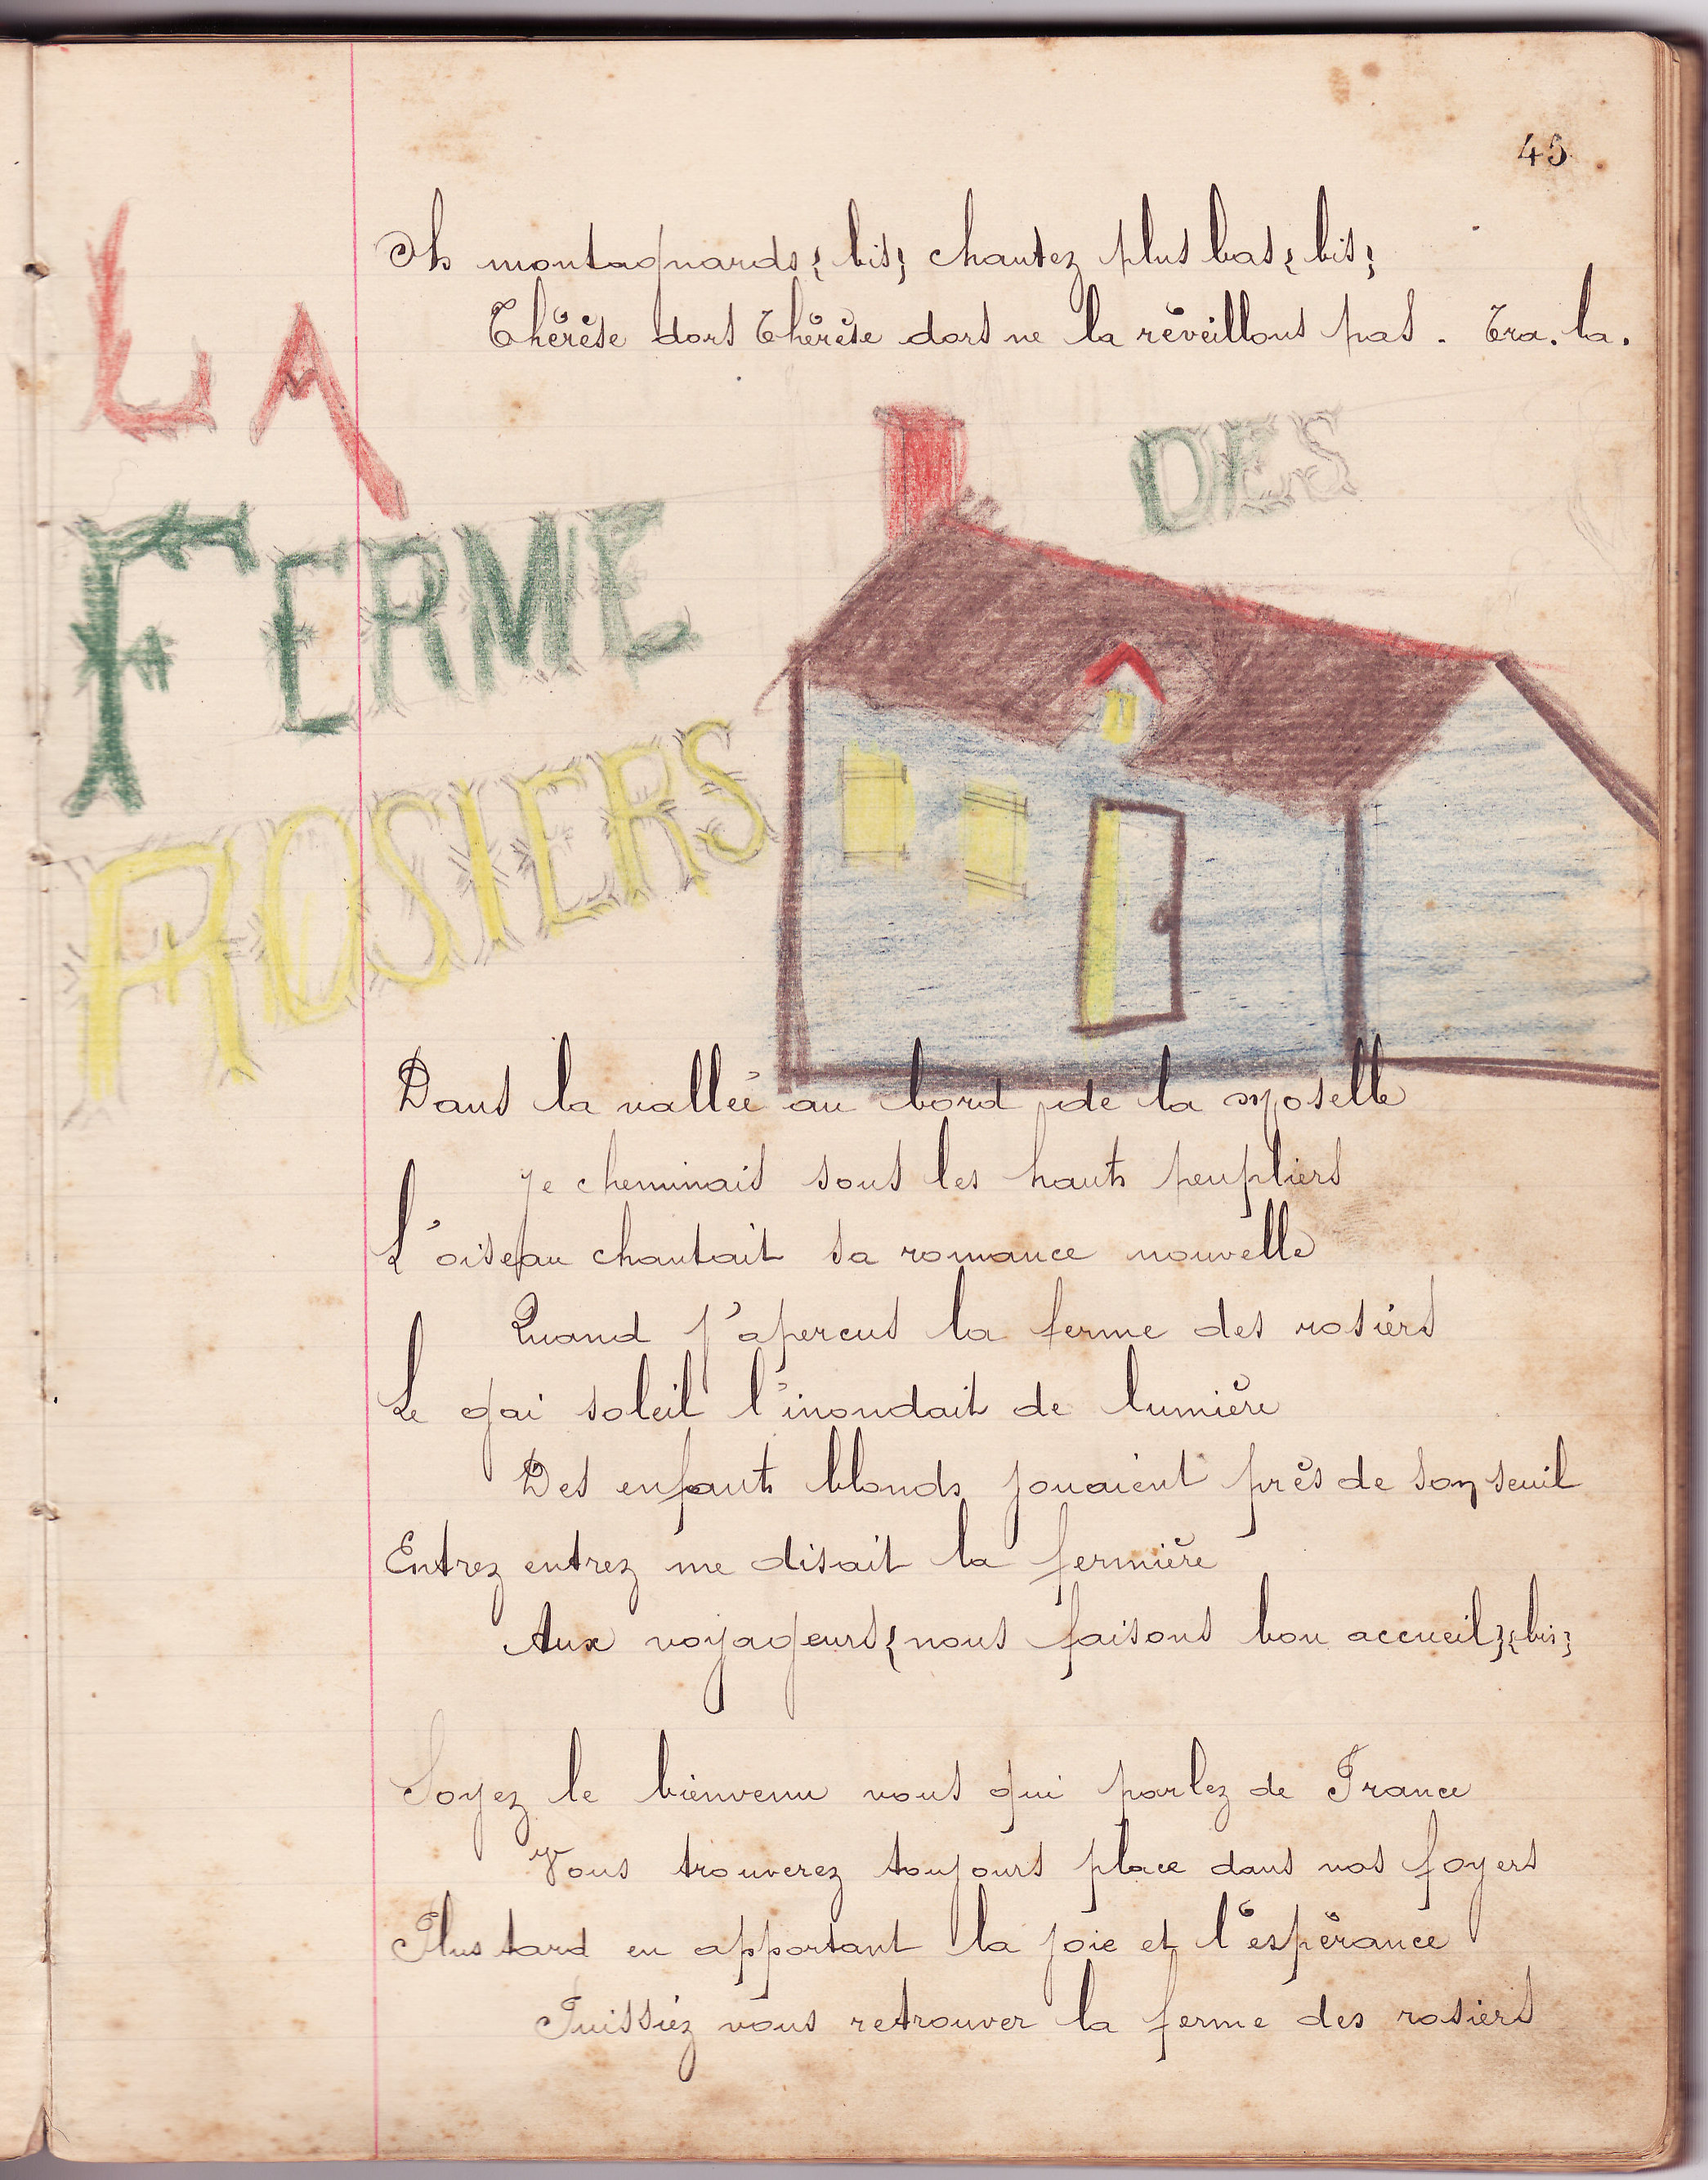 45
Oh montagnards {bis} chantez plus bas {bis}
Thérèse dort Thérèse dort ne la réveillons pas. Tra. la.
LA
FERME
DES
ROSIERS
Dans la vallée au bord de la Moselle
Je cheminais sous les hauts peupliers
L'oiseau chantait sa romance nouvelle
Quand j'apercus la ferme des rosiers
Le gai soleil l'inondait de lumière
Des enfants blonds jouaient près de son seuil
Entrez entrez me disait la fermière
Aux voyageurs {nous faisons bon accueil} {bis}
Soyez le bienvenu vous qui parlez de France
Vous trouverez toujours place dans nos foyers
Plus tard en apportant la joie et l'espérance
Puissiez vous retrouver la ferme des rosiers